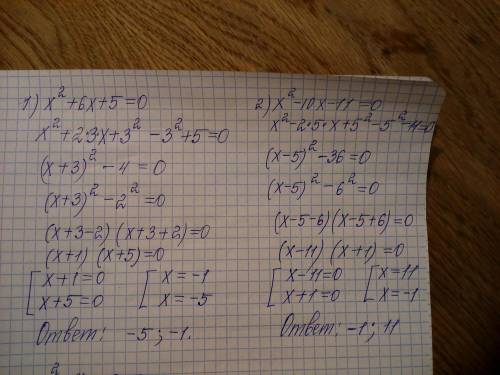 1) x² + 6x + 5 = 0
x² + 2·3x + 3² - 3² + 5 = 0
(x+3)² - 4 = 0
(x+3)² - 2² = 0
(x+3-2) (x+3+2) = 0
(x+1) (x+5) = 0
[ x+1=0 [ x=-1
x+5=0 x=-5
Ответ: -5; -1.
2) x² - 10x - 11 = 0
x² - 2·5·x + 5² - 5² - 11 = 0
(x-5)² - 36 = 0
(x-5)² - 6² = 0
(x-5-6) (x-5+6) = 0
(x-11) (x+1) = 0
[ x-11=0 [ x=11
x+1=0 x=-1
Ответ: -1; 11